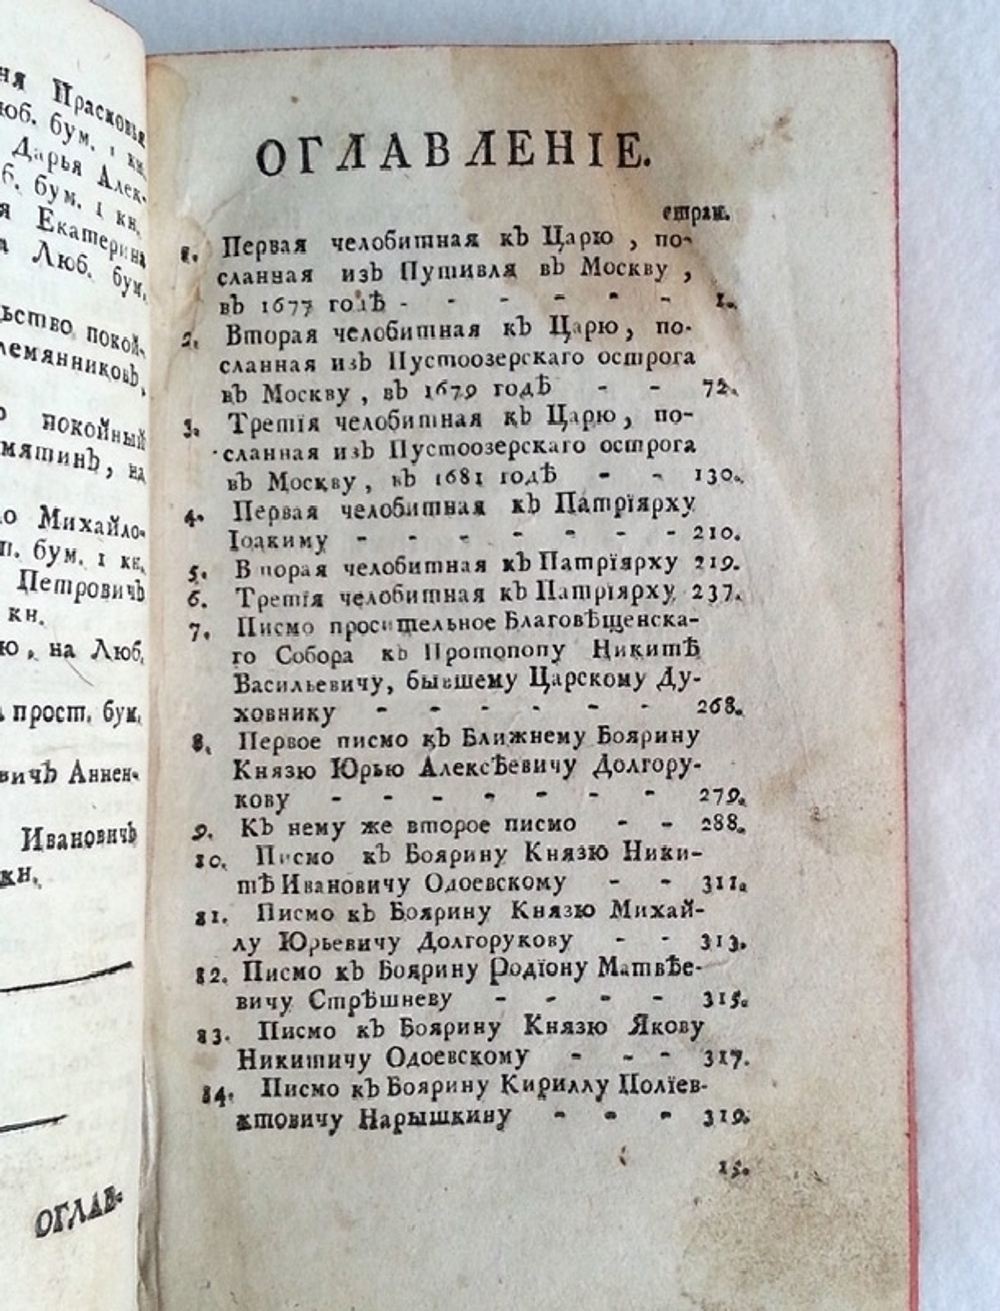 ня Прасковья
люб. бум. 1 кн.
Дарья Алек-
б. бум. 1 кн.
я Екатерина
а Люб. бум.
ьство покой-
лемянниковъ,
покойный
мятинъ, на
о Михайло-
п. бум. 1 кн.
Петровичь
кн.
ю, на Люб.
прост. бум.
вичь Аннен-
Ивановичь
кн.
ОГЛАВ-
ОГЛАВЛЕНІЕ.
стран.
1. Первая челобитная къ Царю, по-
сланная изъ Путивля въ Москву,
въ 1677 годѣ - - - - - - 1.
2. Вторая челобитная къ Царю, по-
сланная изъ Пустоозерскаго острога
въ Москву, въ 1679 годѣ - - 72.
3. Третїя челобитная къ Царю, по-
сланная изъ Пустоозерскаго острога
въ Москву, въ 1681 годѣ - - 130.
4. Первая челобитная къ Патрїярху
Іоакиму - - - - - - - 210.
5. Вторая челобитная къ Патрїярху 219.
6. Третїя челобитная къ Патрїярху 237.
7. Писмо просительное Благовѣщенска-
го Собора къ Протопопу Никитѣ
Васильевичу, бывшему Царскому Ду-
ховнику - - - - - - 268.
8. Первое писмо къ Ближнему Боярину
Князю Юрью Алексѣевичу Долгору-
кову - - - - - - - 279.
9. Къ нему же второе писмо - - 288.
10. Писмо къ Боярину Князю Ники-
тѣ Ивановичу Одоевскому - - 311.
11. Писмо къ Боярину Князю Михай-
лу Юрьевичу Долгорукову - - 313.
12. Писмо къ Боярину Родїону Матвѣе-
вичу Стрѣшневу - - - - 315.
13. Писмо къ Боярину Князю Якову
Никитичу Одоевскому - - - 317.
14. Писмо къ Боярину Кириллу Полїев-
ктовичу Нарышкину - - - 319.
15.